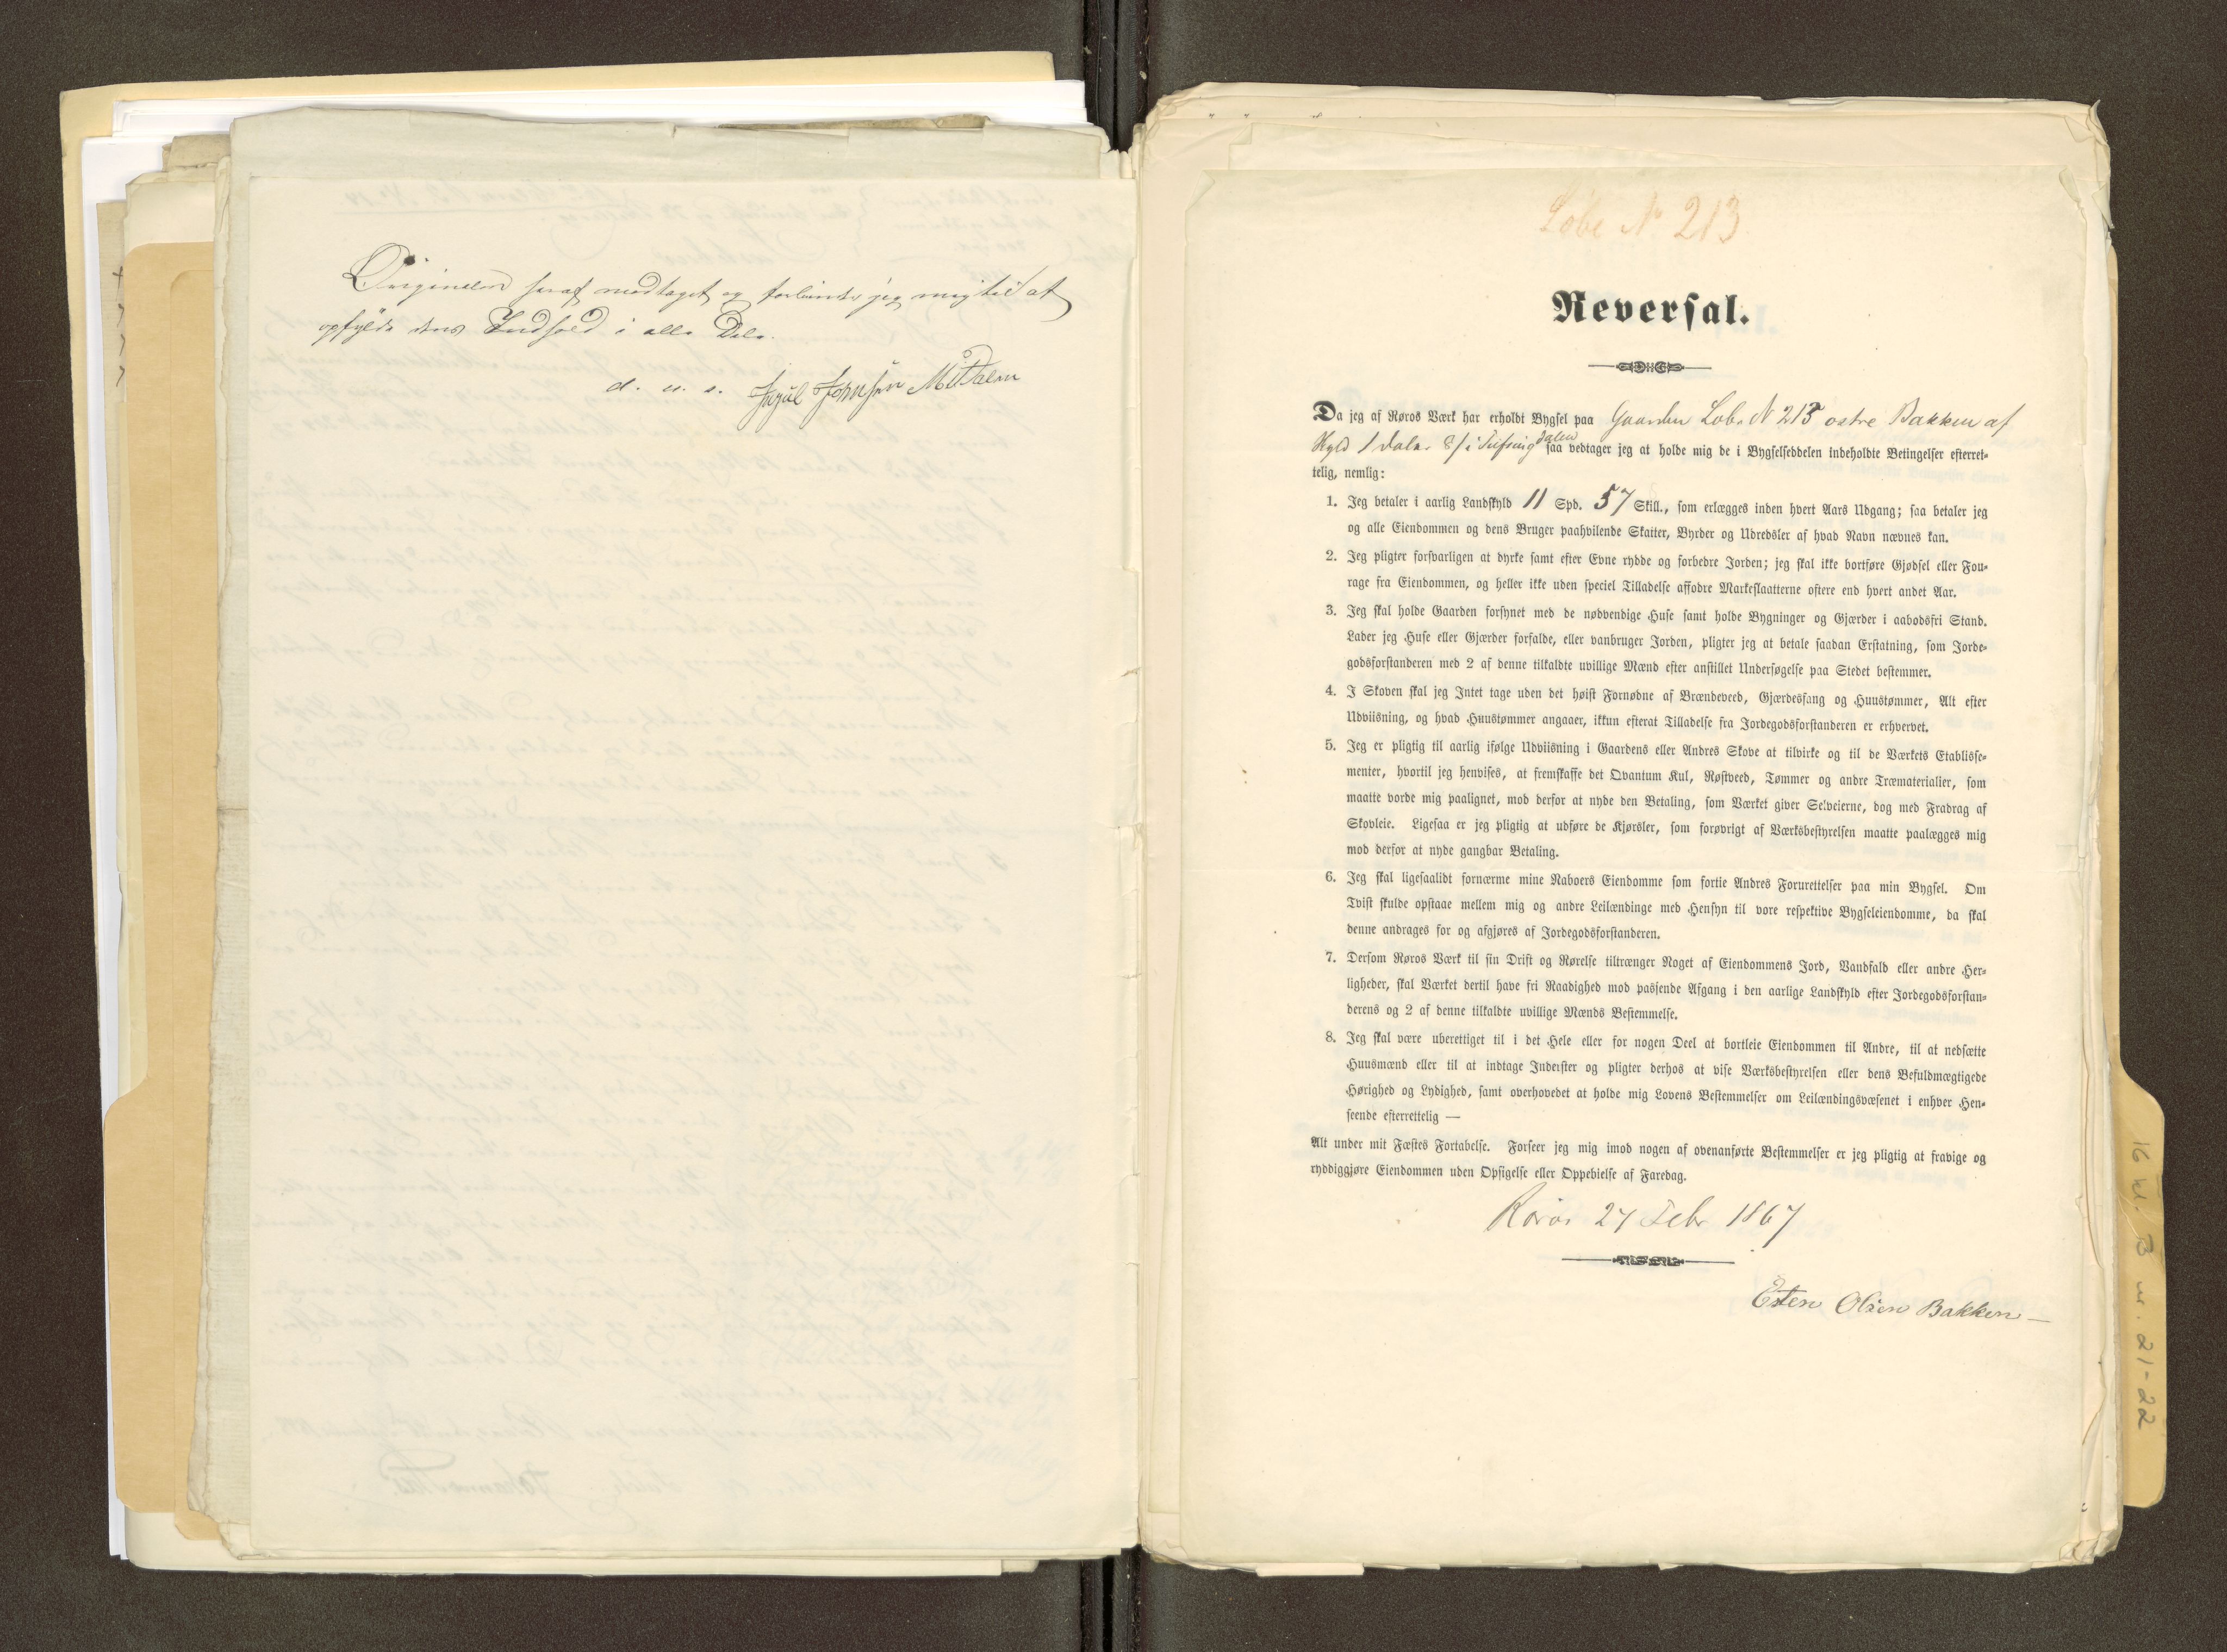 Originalen heraf modtaget og forbinder jeg mig til at
opfylde dens Indhold i alle Dele.
d. u. s. Ingul Jonsen Midtalen
Løbe N 213
Reversal.
Da jeg af Røros Værk har erholdt Bygsel paa Gaarden Løbe N 213 østre Bakken af
Skyld 1 Daler i Tufsingdalen saa vedtager jeg at holde mig de i Bygselseddelen indeholdte Betingelser efterret-
telig, nemlig:
1. Jeg betaler i aarlig Landskyld 11 Spd. 57 Skill., som erlægges inden hvert Aars Udgang; saa betaler jeg
og alle Eiendommen og dens Bruger paahvilende Skatter, Byrder og Udredsler af hvad Navn nævnes kan.
2. Jeg pligter forsvarligen at dyrke samt efter Evne rydde og forbedre Jorden; jeg skal ikke bortføre Gjødsel eller Fou-
rage fra Eiendommen, og heller ikke uden speciel Tilladelse affodre Markeslaatterne oftere end hvert andet Aar.
3. Jeg skal holde Gaarden forsynet med de nødvendige Huse samt holde Bygninger og Gjærder i aabodsfri Stand.
Lader jeg Huse eller Gjærder forfalde, eller vanbruger Jorden, pligter jeg at betale saadan Erstatning, som Jorde-
godsforstanderen med 2 af denne tilkaldte uvillige Mænd efter anstillet Undersøgelse paa Stedet bestemmer.
4. I Skoven skal jeg Intet tage uden det høist Fornødne af Brændeveed, Gjærdesfang og Huustømmer, Alt efter
Udviisning, og hvad Huustømmer angaaer, ikkun efterat Tilladelse fra Jordegodsforstanderen er erhvervet.
5. Jeg er pligtig til aarlig ifølge Udviisning i Gaardens eller Andres Skove at tilvirke og til de Værkets Etablisse-
menter, hvortil jeg henvises, at fremskaffe det Qvantum Kul, Røstveed, Tømmer og andre Træmaterialier, som
maatte vorde mig paalignet, mod derfor at nyde den Betaling, som Værket giver Selveierne, dog med Fradrag af
Skovleie. Ligesaa er jeg pligtig at udføre de Kjørsler, som forøvrigt af Værksbestyrelsen maatte paalægges mig
mod derfor at nyde gangbar Betaling.
6. Jeg skal ligesaalidt fornærme mine Naboers Eiendomme som fortie Andres Forurettelser paa min Bygsel. Om
Tvist skulde opstaae mellem mig og andre Leilændinge med Hensyn til vore respektive Bygseleiendomme, da skal
denne andrages for og afgjøres af Jordegodsforstanderen.
7. Dersom Røros Værk til sin Drift og Rørelse tiltrænger Noget af Eiendommens Jord, Vandfald eller andre Her-
ligheder, skal Værket dertil have fri Raadighed mod passende Afgang i den aarlige Landskyld efter Jordegodsforstan-
derens og 2 af denne tilkaldte uvillige Mænds Bestemmelse.
8. Jeg skal være uberettiget til i det Hele eller for nogen Deel at bortleie Eiendommen til Andre, til at nedsætte
Huusmænd eller til at indtage Inderster og pligter derhos at vise Værksbestyrelsen eller dens Befuldmægtigede
Hørighed og Lydighed, samt overhovedet at holde mig Lovens Bestemmelser om Leilændingsvæsenet i enhver Hen-
seende efterrettelig —
Alt under mit Fæstes Fortabelse. Forseer jeg mig imod nogen af ovenanførte Bestemmelser er jeg pligtig at fravige og
ryddiggjøre Eiendommen uden Opsigelse eller Oppebielse af Faredag.
Røros 27 Febr 1867
Esten Olsen Bakken —
16 kl. B nr. 21-22